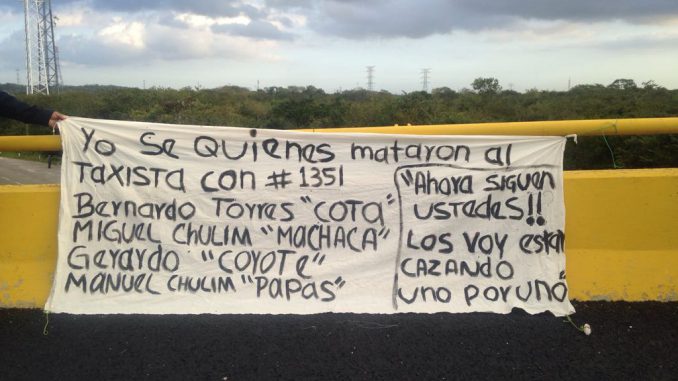 Yo Se QUIENES mataron al
TAXISTA CON # 1351
Bernardo Torres "COTA"
MIGUEL CHULIM "MACHACA"
Gerardo "COYOTE"
MANUEL CHULIM "PAPAS"
"Ahora SIGUEN
USTEDES!!
LOS VOY estar
CAZANDO
UNO POR UNO"